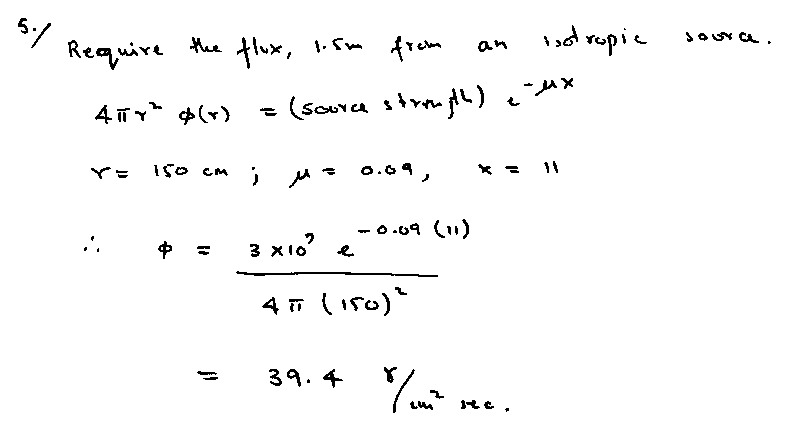 5./ Require the flux, 1.5m from an isotropic source.
4πr² φ(r) = (source strength) e^{-μx}
r = 150 cm ; μ = 0.09, x = 11
∴ φ = 3 × 10⁷ e^{-0.09 (11)}
4π (150)²
= 39.4 γ/cm² sec.